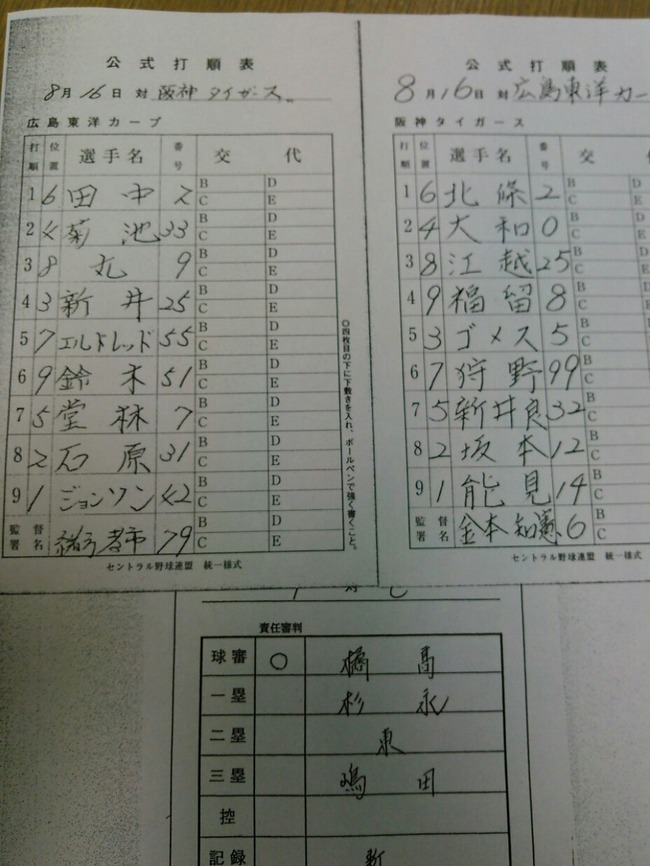 公式打順表
8月16日 対 阪神タイガース
広島東洋カープ
打順 位置 選手名 番号 交代
1 6 田中 2 B C D E
2 4 菊池 33 B C D E
3 8 丸 9 B C D E
4 3 新井 25 B C D E
5 7 エルドレッド 55 B C D E
6 9 鈴木 51 B C D E
7 5 堂林 7 B C D E
8 2 石原 31 B C D E
9 1 ジョンソン 42 B C D E
監督署名 緒方孝市 79 B C D E
セントラル野球連盟 統一様式
○四枚目の下に下敷きを入れ、ボールペンで強く書くこと。
公式打順表
8月16日 対 広島東洋カー
阪神タイガース
打順 位置 選手名 番号 交代
1 6 北條 2 B C D E
2 4 大和 0 B C D E
3 8 江越 25 B C D E
4 9 福留 8 B C D E
5 3 ゴメス 5 B C D E
6 7 狩野 99 B C
7 5 新井良 32 B C
8 2 坂本 12 B C
9 1 能見 14 B C
監督署名 金本知憲 6 B C
セントラル野球連盟 統一様式
責任審判
球審 ○ 橘高
一塁 杉永
二塁 東
三塁 嶋田
控
記録